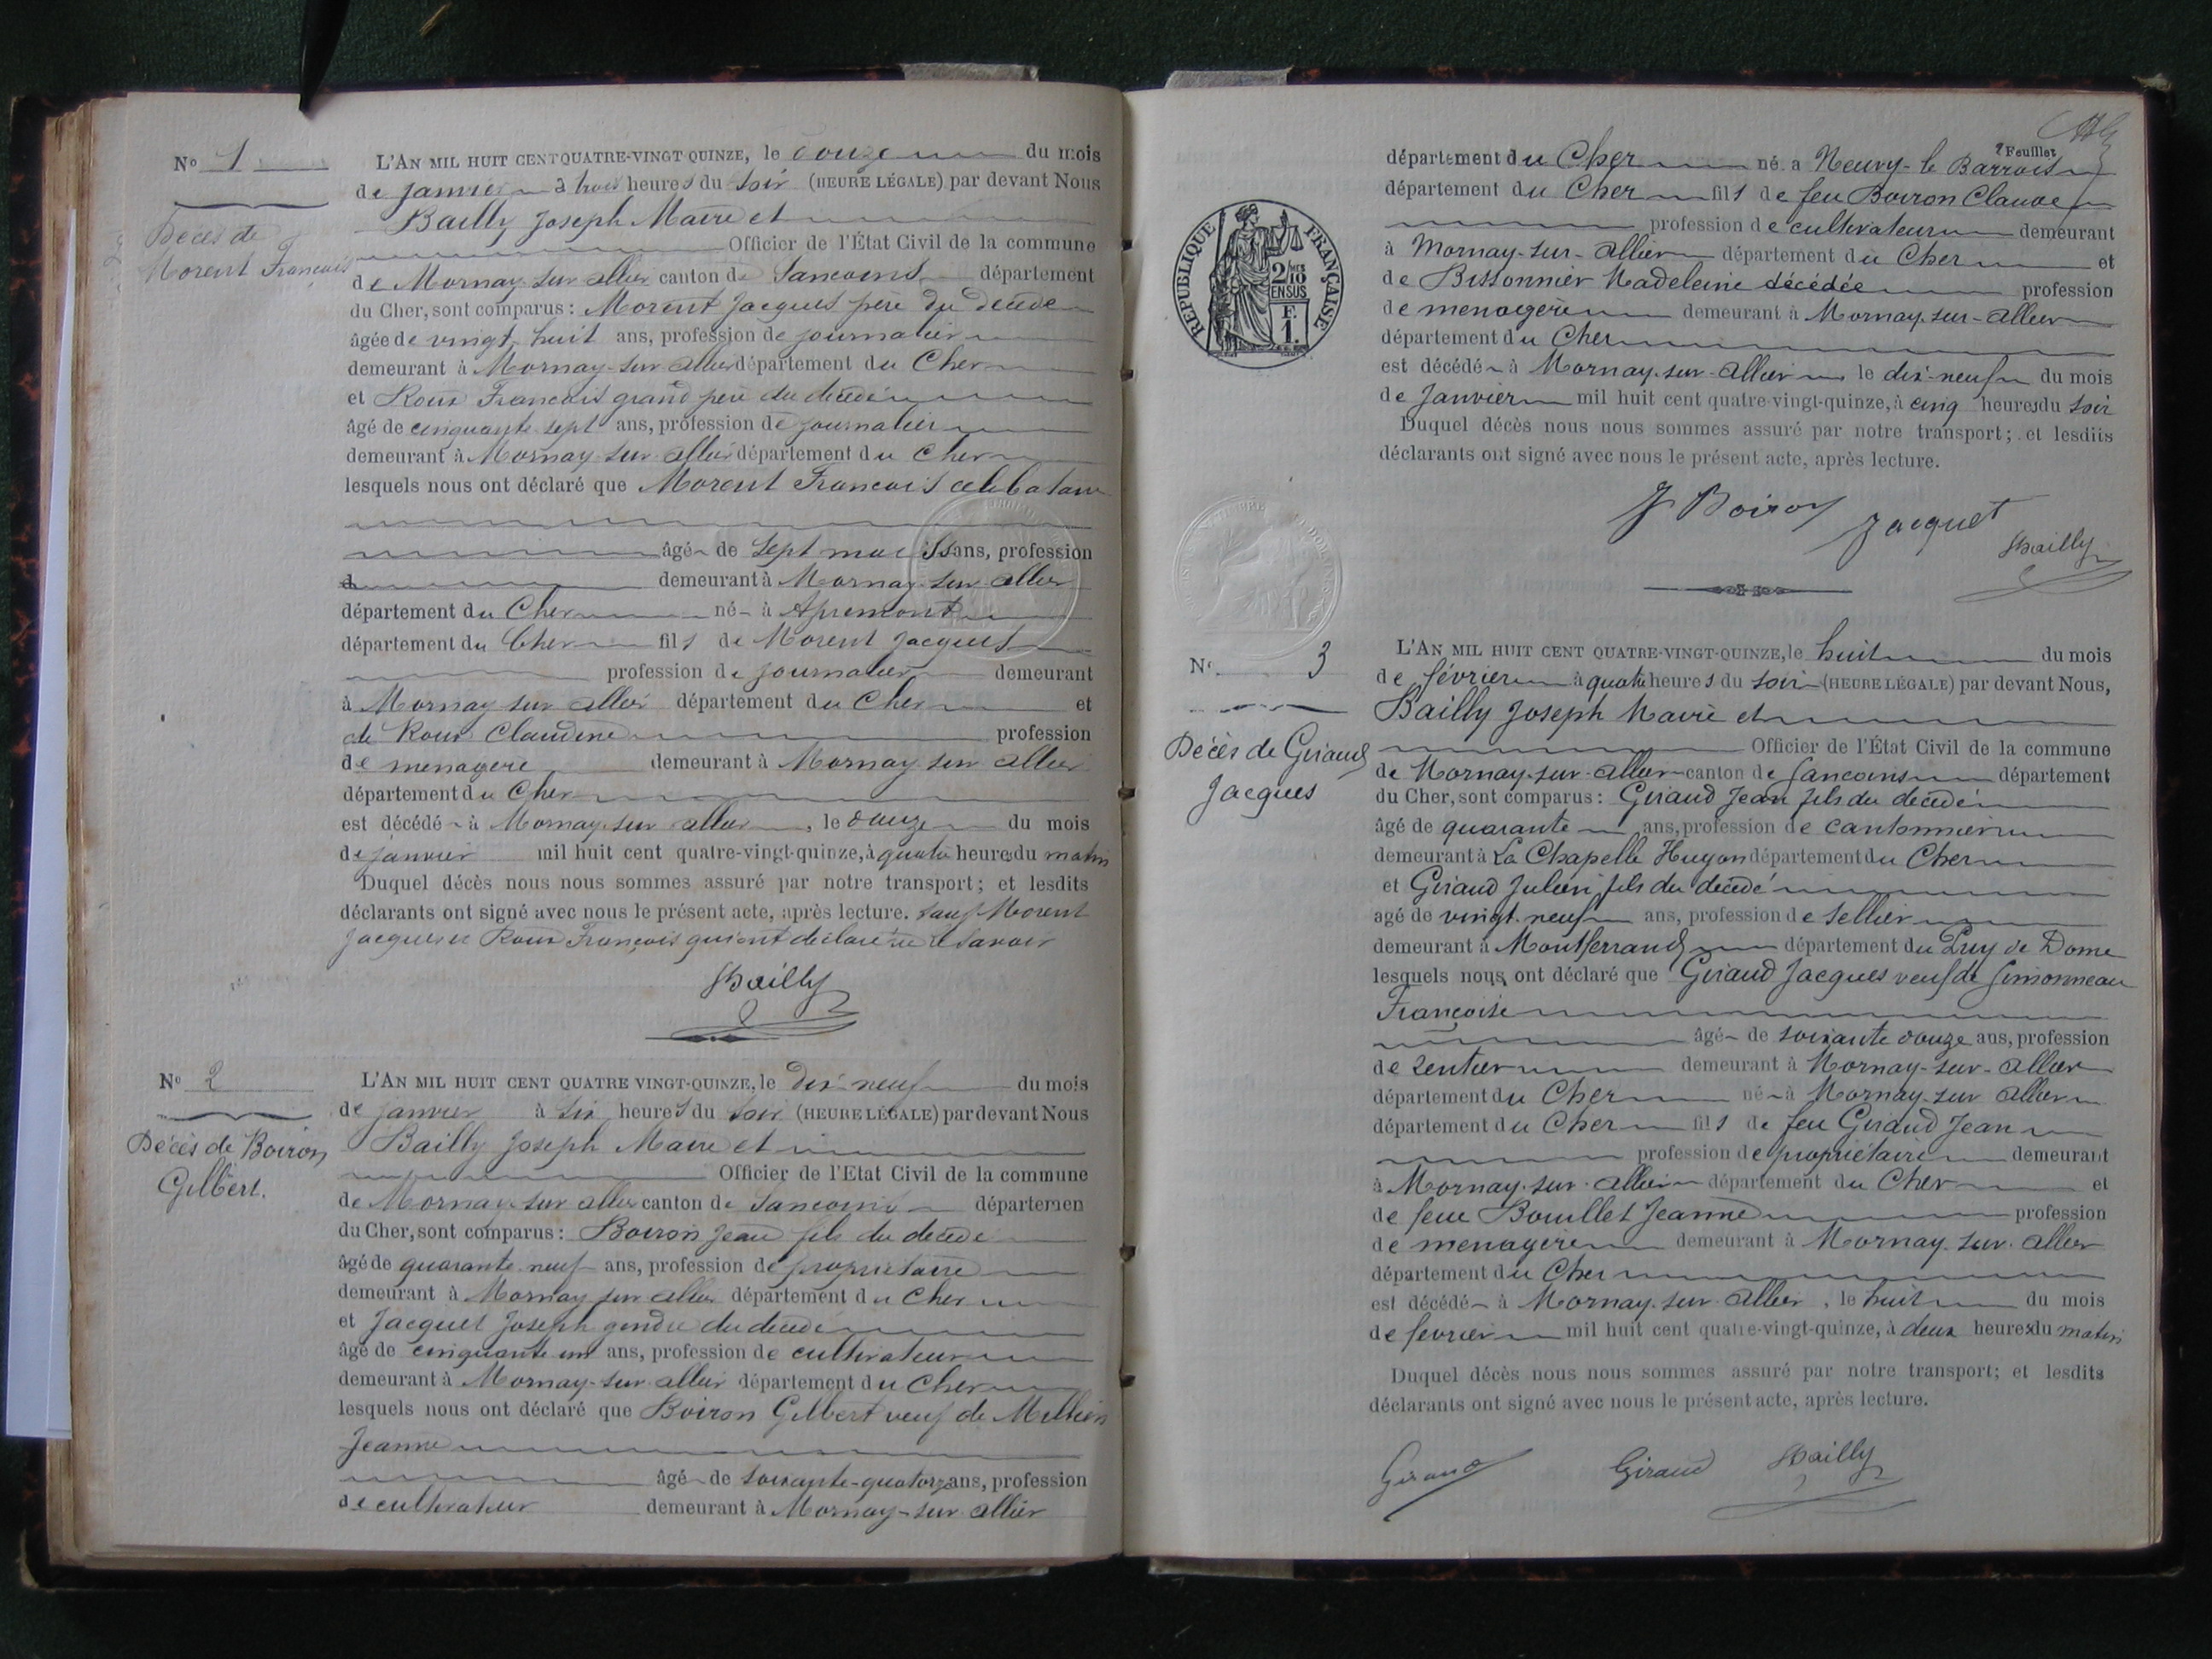 No 1
Décès de
Morent François
L'AN MIL HUIT CENT QUATRE-VINGT QUINZE, le douze du mois
de janvier à trois heures du soir (HEURE LÉGALE) par devant Nous
Bailly Joseph Maire et
Officier de l'État Civil de la commune
de Mornay-sur-allier canton de Sancoins département
du Cher, sont comparus : Morent Jacques père du décédé
âgée de vingt huit ans, profession de journalier
demeurant à Mornay-sur-allier département du Cher
et Roux Francois grand père du décédé
âgé de cinquante sept ans, profession de journalier
demeurant à Mornay-sur-allier département du Cher
lesquels nous ont déclaré que Morent Francois celibataire
âgé de sept mois ans, profession
d demeurant à Mornay-sur-allier
département du Cher né à Apremont
département du Cher fils de Morent Jacques
profession de journalier demeurant
à Mornay sur allier département du Cher et
de Roux Claudine profession
de menagere demeurant à Mornay sur allier
département du Cher
est décédé à Mornay sur allier, le douze du mois
de janvier mil huit cent quatre-vingt-quinze, à quatre heures du matin
Duquel décès nous nous sommes assuré par notre transport; et lesdits
déclarants ont signé avec nous le présent acte, après lecture. sauf Morent
Jacques et Roux François qui ont déclaré ne le savoir
Bailly
No 2
Décès de Boiron
Gilbert.
L'AN MIL HUIT CENT QUATRE VINGT-QUINZE, le dix-neuf du mois
de janvier à six heures du soir (HEURE LÉGALE) par devant Nous
Bailly Joseph Maire et
Officier de l'Etat Civil de la commune
de Mornay-sur allier canton de Sancoins départemen
du Cher, sont comparus : Boiron Jean fils du décédé
âgé de quarante neuf ans, profession de propriétaire
demeurant à Mornay sur allier département du Cher
et Jacquet Joseph gendre du décédé
âgé de cinquante un ans, profession de cultivateur
demeurant à Mornay-sur-allier département du Cher
lesquels nous ont déclaré que Boiron Gilbert veuf de Millien
Jeanne
âgé de soixante-quatorze ans, profession
de cultivateur demeurant à Mornay-sur allier
2 Feuillet
département du Cher né à Neuvy-le Barrois
département du Cher fils de feu Boiron Claude
profession de cultivateur demeurant
à Mornay-sur-Allier département du Cher et
de Bissonnier Madeleine décédée profession
de menagère demeurant à Mornay-sur-allier
département du Cher
est décédé à Mornay-sur-Allier le dix-neuf du mois
de Janvier mil huit cent quatre-vingt-quinze, à cinq heures du soir
Duquel décès nous nous sommes assuré par notre transport; et lesdits
déclarants ont signé avec nous le présent acte, après lecture.
J Boiron Jacquet Bailly
RÉPUBLIQUE FRANÇAISE
2/10 MES
EN SUS
F.
1.
No 3
Décès de Giraud
Jacques
L'AN MIL HUIT CENT QUATRE-VINGT-QUINZE, le huit du mois
de février à quatre heures du soir (HEURE LÉGALE) par devant Nous,
Bailly Joseph Maire et
Officier de l'État Civil de la commune
de Mornay-sur-allier canton de Sancoins département
du Cher, sont comparus : Giraud Jean fils du décédé
âgé de quarante ans, profession de cantonnier
demeurant à La Chapelle Hugon département du Cher
et Giraud Julien fils du décédé
agé de vingt-neuf ans, profession de sellier
demeurant à Montferrand département du Puy de Dome
lesquels nous ont déclaré que Giraud Jacques veuf de Simonneau
Françoise
âgé de soixante douze ans, profession
de rentier demeurant à Mornay-sur-allier
département du Cher né à Mornay-sur allier
département du Cher fils de feu Giraud Jean
profession de propriétaire demeurant
à Mornay-sur-allier département du Cher et
de feue Bouillet Jeanne profession
de menagère demeurant à Mornay-sur-allier
département du Cher
est décédé à Mornay-sur-Allier, le huit du mois
de fevrier mil huit cent quatre-vingt-quinze, à deux heures du matin
Duquel décès nous nous sommes assuré par notre transport; et lesdits
déclarants ont signé avec nous le présent acte, après lecture.
Giraud Giraud Bailly